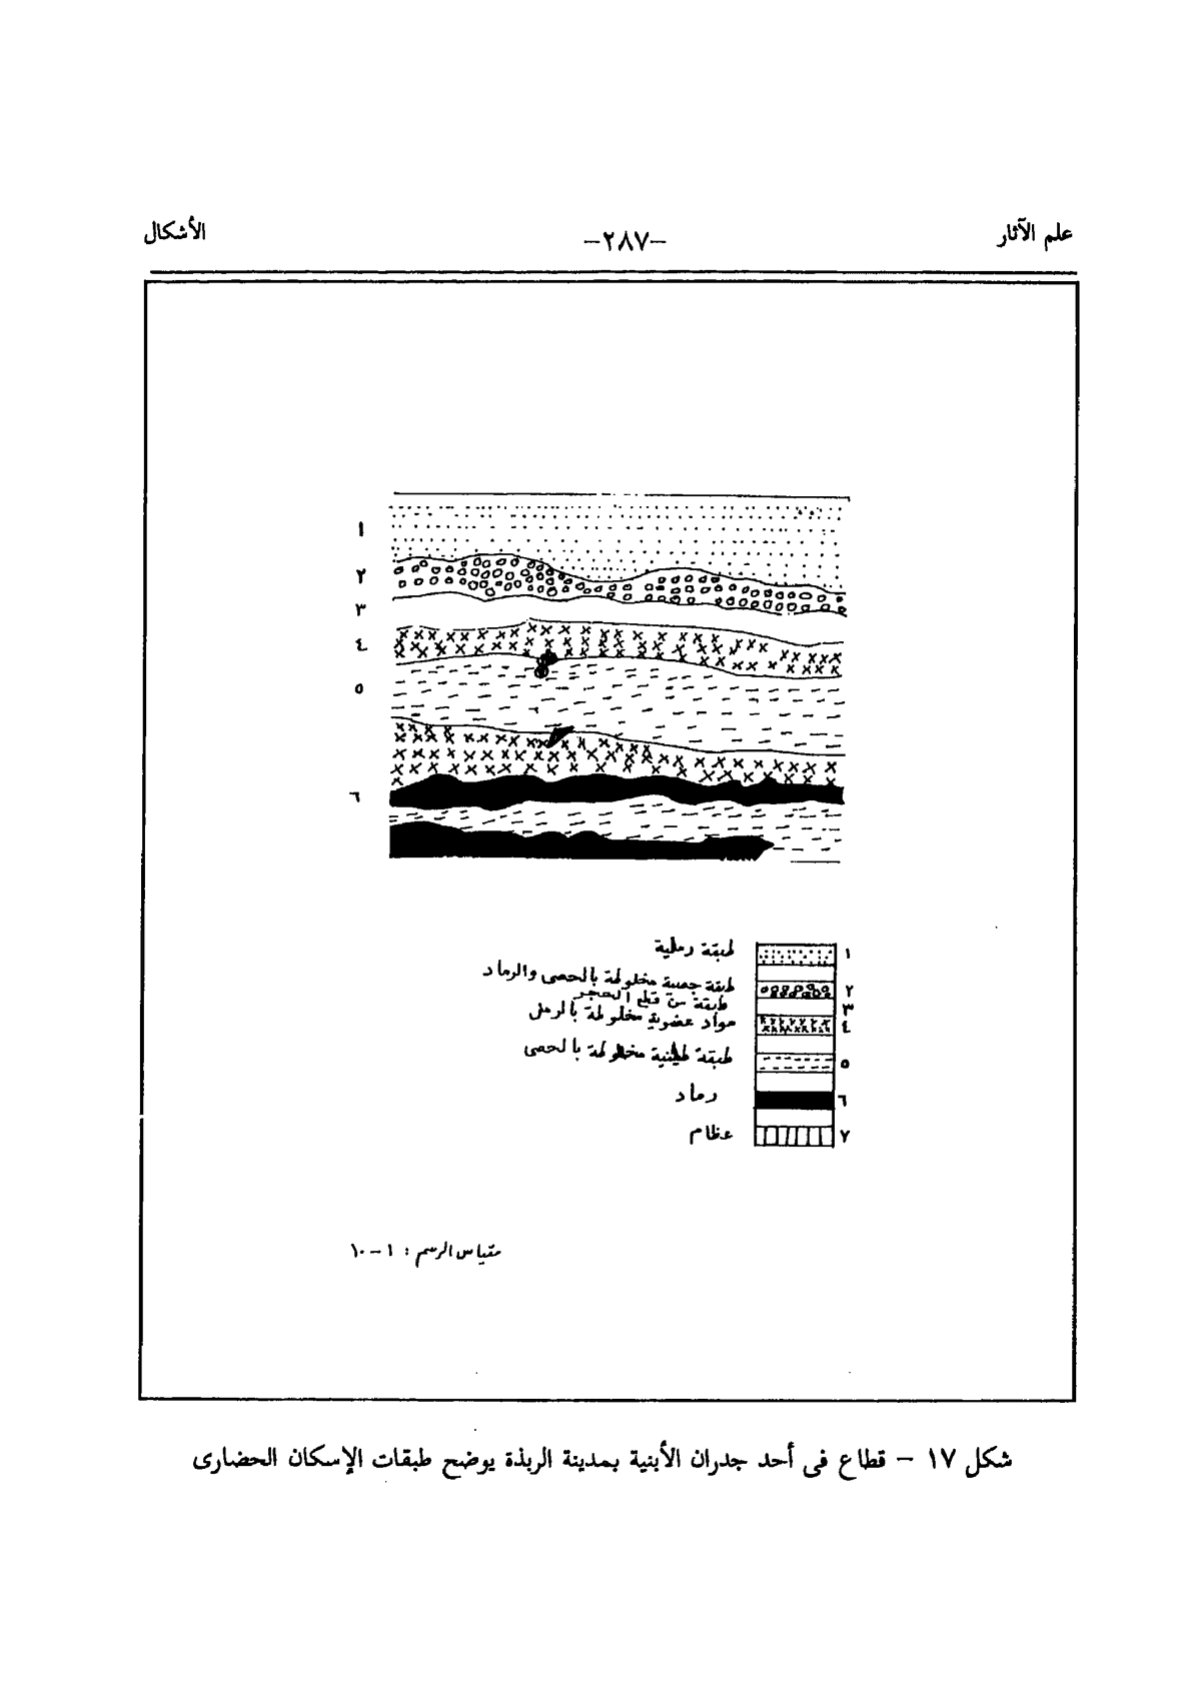 علم الآثار
-٢٨٧-
الأشكال
١
٢
٣
٤
٥
٦
١ طبقة رملية
٢ طبقة جصية مخلوطة بالحصى والرماد
٣ طبقة من قطع الحجر
٤ مواد عضوية مخلوطة بالرمل
٥ طبقة طينية مخلوطة بالحصى
٦ رماد
٧ عظام
مقياس الرسم : ١-١٠
شكل ١٧ - قطاع فى أحد جدران الأبنية بمدينة الربذة يوضح طبقات الإسكان الحضارى